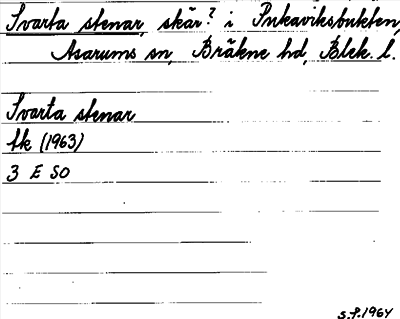 Svarta stenar, skär? i Pukaviksbukten,
Asarums sn, Bräkne hd, Blek. l.
Svarta stenar
fk (1963)
3 E SO
s.f. 1964